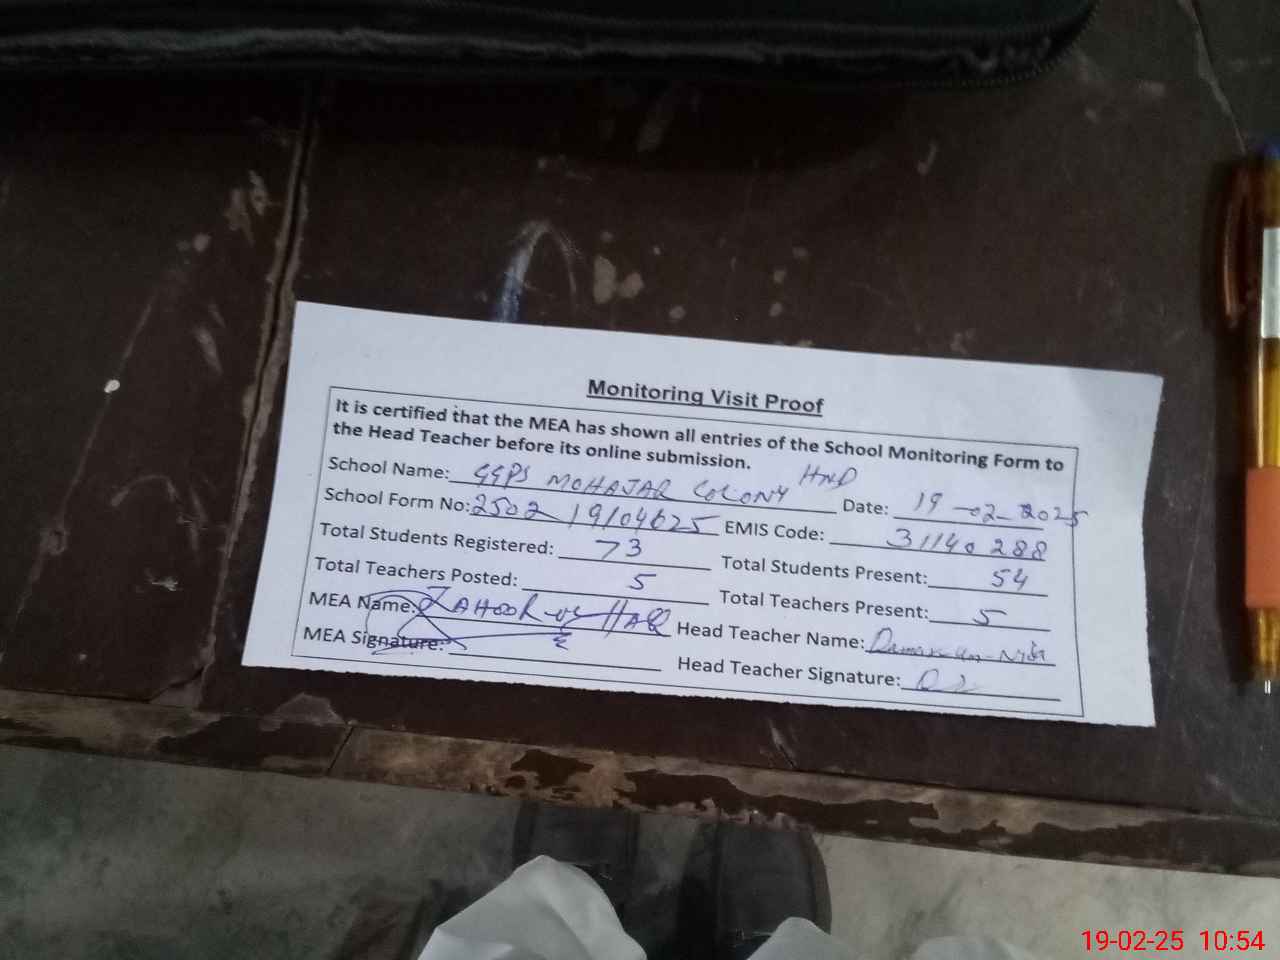 Monitoring Visit Proof
It is certified that the MEA has shown all entries of the School Monitoring Form to
the Head Teacher before its online submission.
School Name: GGPS MOHAJAR COLONY HND Date: 19-02-2025
School Form No: 2502 19104625 EMIS Code: 31140288
Total Students Registered: 73 Total Students Present: 54
Total Teachers Posted: 5 Total Teachers Present: 5
MEA Name: ZAHOOR-UL HAQ Head Teacher Name:
MEA Signature: Head Teacher Signature:
19-02-25 10:54